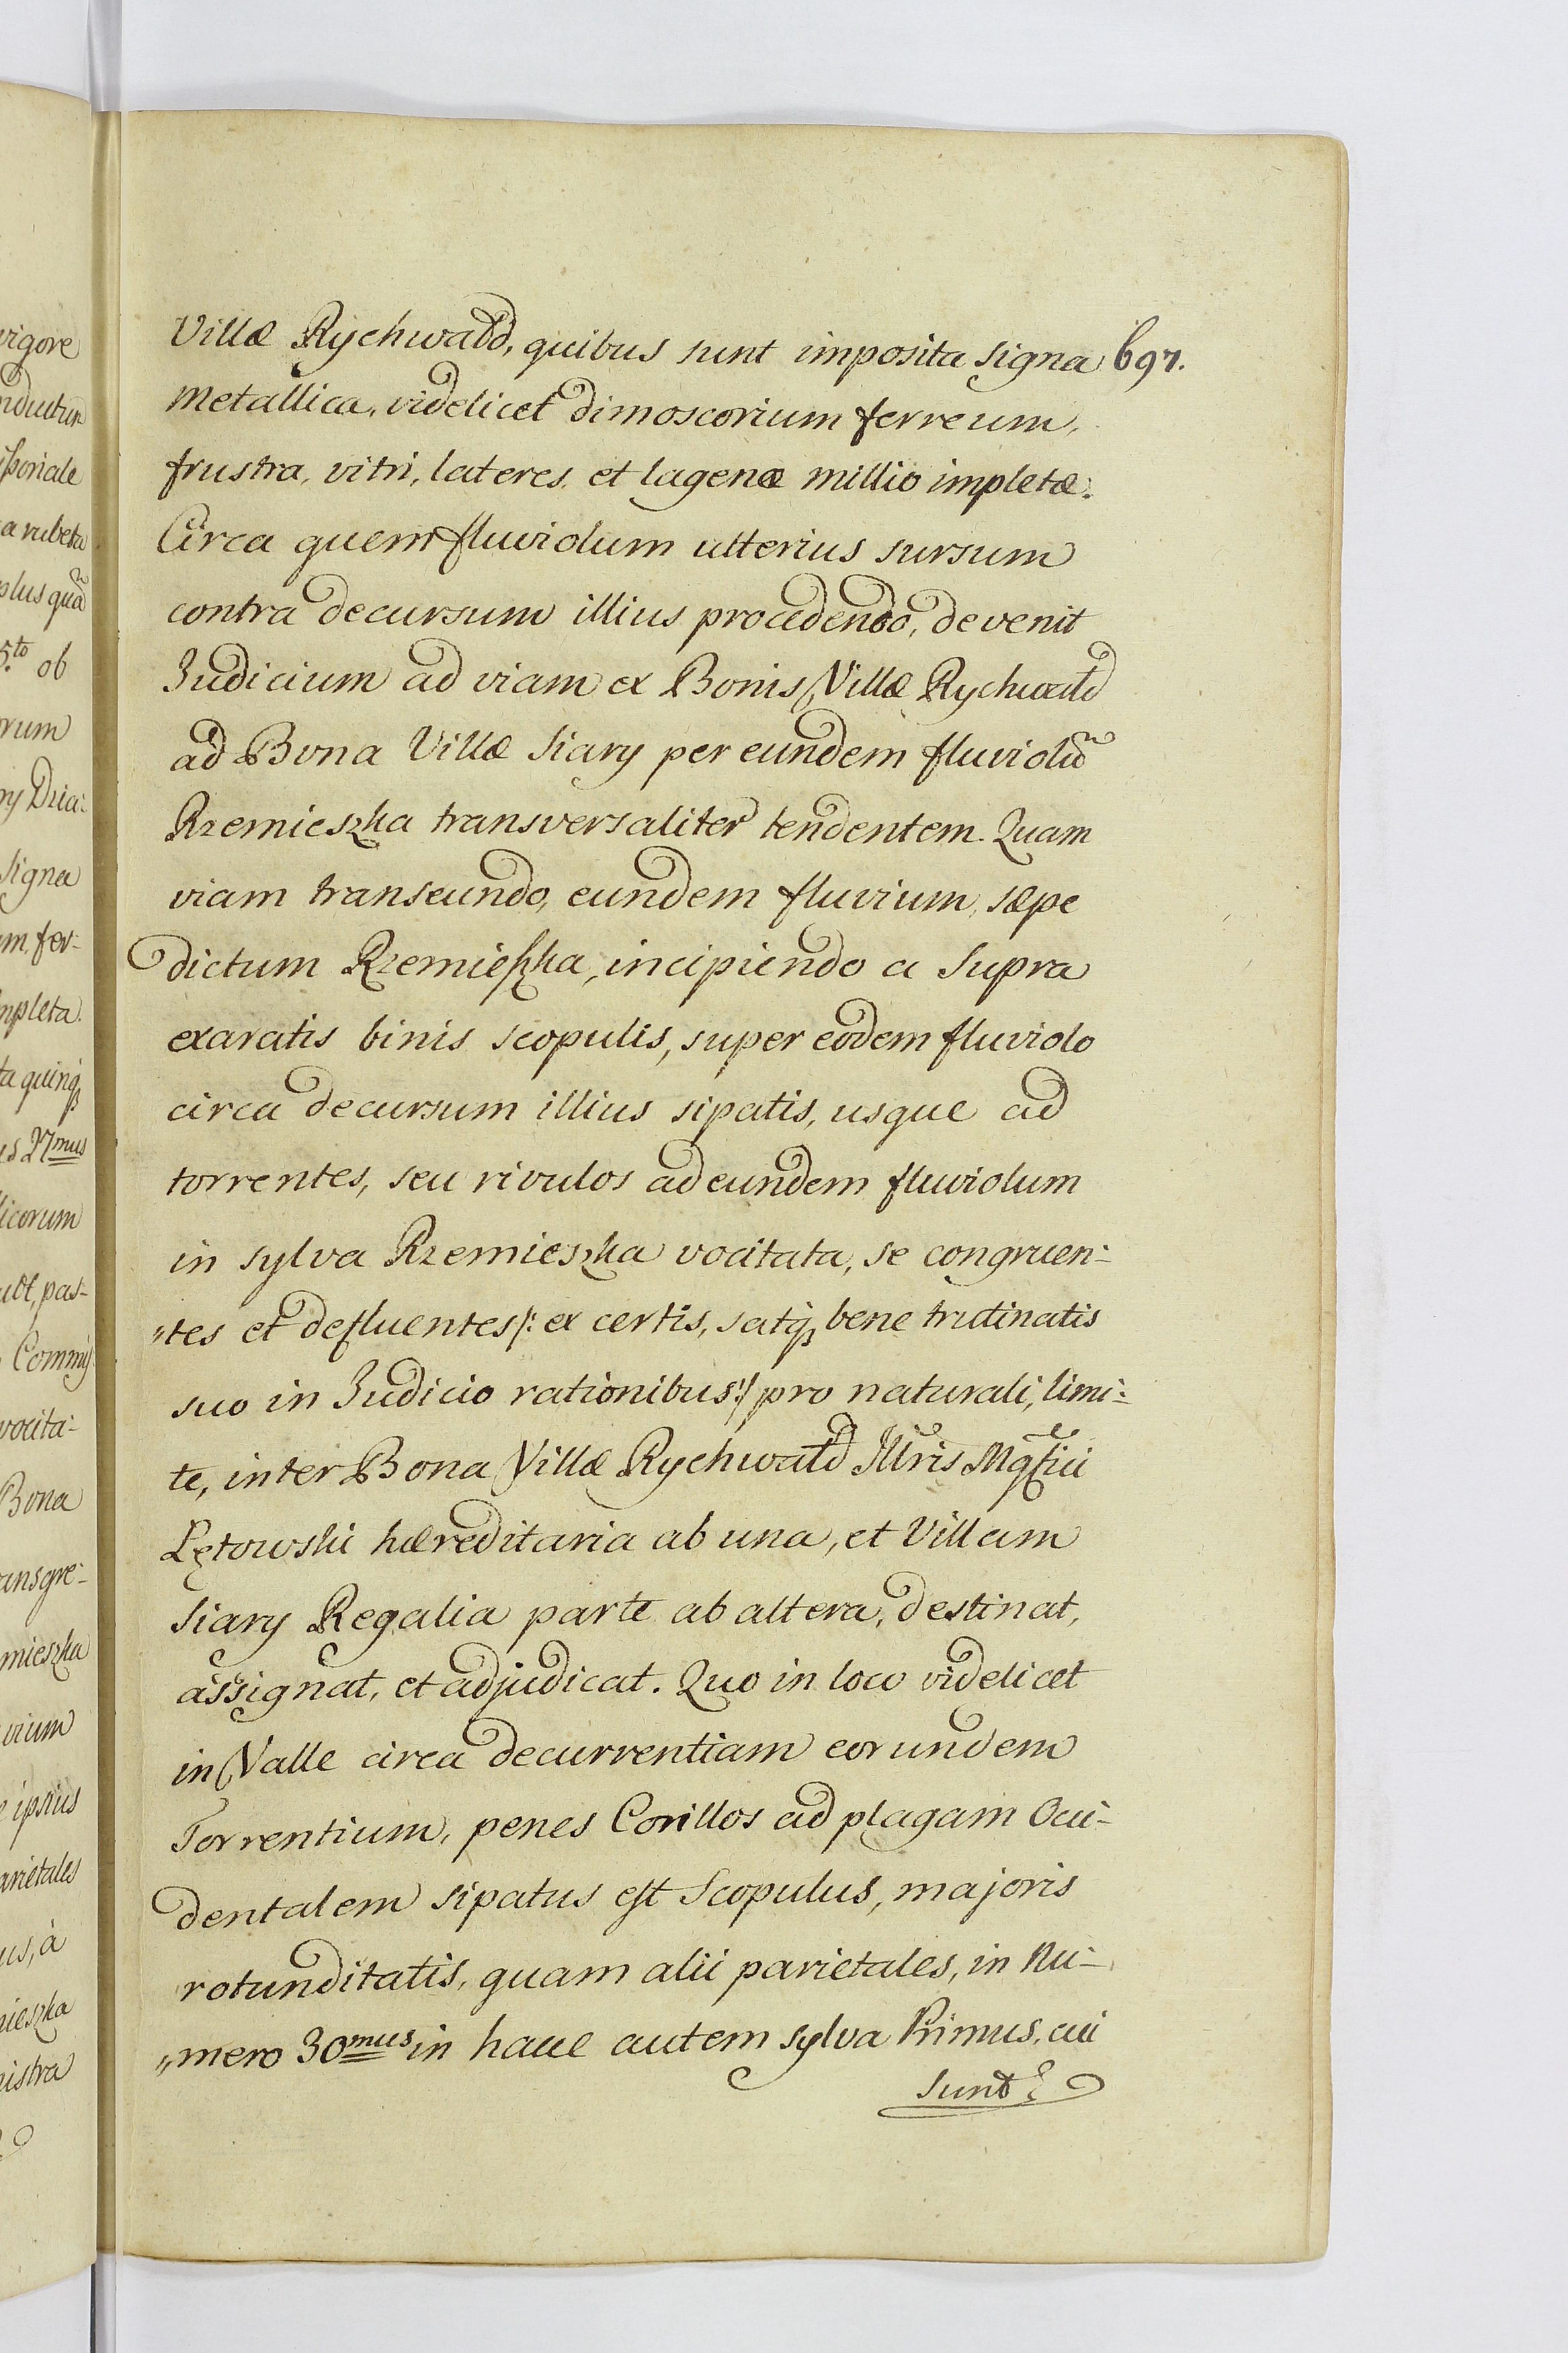 vigore
nductur
ißoriale
a rubeta
plus quã
5.to ob
orum
ry Dzia:
Signa
m, fer-
mpleta.
ta quinq,
us 27mus
licorum
ult, pas-
Commis
vocita-
Bona
ansgre-
mieszka
vium
e ipsius
arietales
us, à
mieszka
nistra
697.
Villæ Rychwald, quibus sunt imposita signa
metallica, videlicet dimoscorium ferreum,
frustra, vitri, lateres, et lagenæ millio impletæ.
Circa quem fluviolum ulterius sursum
contra decursum illius procedendo, devenit
Judicium ad viam ex Bonis Villæ Rychwald
ad Bona Villæ Siary per eundem fluviolũ
Rzemieszka transversaliter tendentem. Quam
viam transeundo, eundem fluvium, sæpe
dictum Rzemießka, incipiendo a supra
exaratis binis scopulis, super eodem fluviolo
circa decursum illius sipatis, usque ad
torrentes, seu rivulos ad eundem fluviolum
in sylva Rzemieszka vocitata, se congruen-
„tes et defluentes /: ex certis, satq, bene trutinatis
suo in Judicio rationibus :/ pro naturali, limi-
te, inter Bona Villæ Rychwald Illris Mgfici
Łętowski hæreditaria ab una, et Villam
Siary Regalia parte ab altera, destinat,
assignat, et adjudicat. Quo in loco videlicet
in Valle circa decurrentiam eorundem
Torrentium, penes Corillos ad plagam Occi-
dentalem sipatus est Scopulus, majoris
rotunditatis, quam alii parietales, in Nu-
„mero 30mus in hacce autem sylva Primus, cui
Sunt